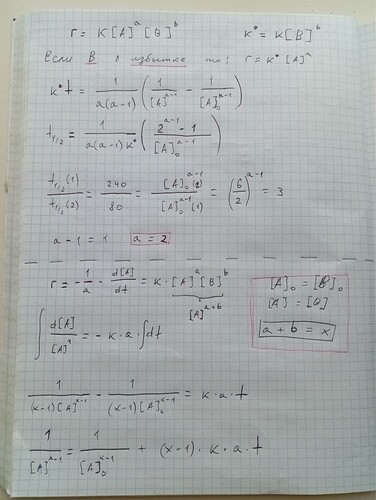 r = K [A]^a [B]^b    K* = K[B]^b
Если B в избытке то: r = K* [A]^a
K* t = 1/(a(a-1)) (1/[A]^(a-1) - 1/[A]₀^(a-1))
t₁/₂ = 1/(a(a-1)K*) ((2^(a-1) - 1)/[A]₀^(a-1))
t₁/₂(1)/t₁/₂(2) = 240/80 = [A]₀^(a-1)(2)/[A]₀^(a-1)(1) = (6/2)^(a-1) = 3
a - 1 = 1    a = 2
r = - 1/a · d[A]/dt = K · [A]^a [B]^b
[A]^(a+b)
[A]₀ = [B]₀
[A] = [B]
a + b = x
∫ d[A]/[A]^x = - K · a · ∫dt
1/((x-1)[A]^(x-1)) - 1/((x-1)[A]₀^(x-1)) = K · a · t
1/[A]^(x-1) = 1/[A]₀^(x-1) + (x-1) · K · a · t